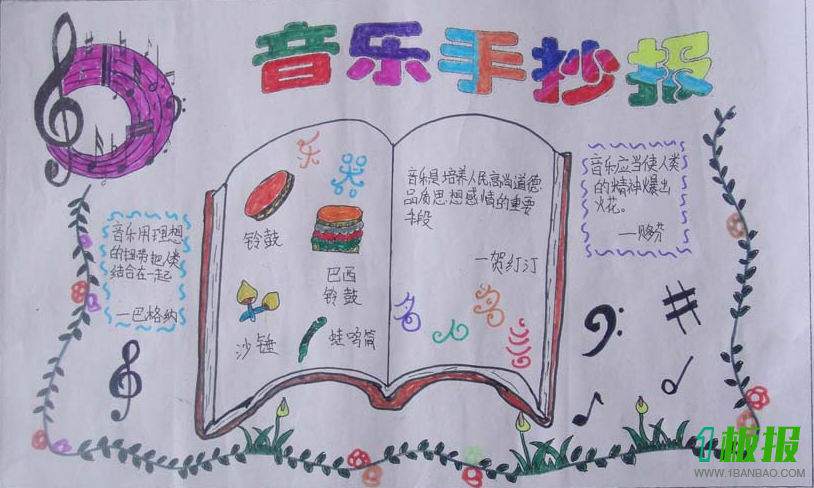 音乐手抄报
音乐用理想
的扭带把人类
结合在一起
—巴格纳
乐器
铃鼓
巴西
铃鼓
沙锤
蛙鸣筒
音乐是培养人民高尚道德
品质思想感情的重要
手段
—贺红汀
名人名言
音乐应当使人类
的精神爆出
火花。
—贝多芬
1板报
WWW.1BANBAO.COM